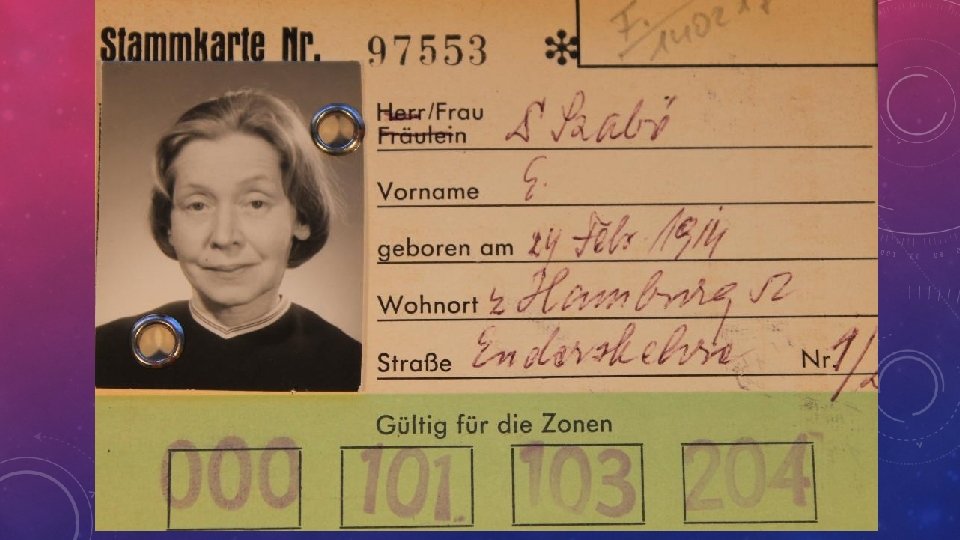 Stammkarte Nr. 97553 *
Herr/Frau
Fräulein Szabó
Vorname E.
geboren am 24 Febr. 1914
Wohnort 2 Hamburg 52
Straße Nr.
Gültig für die Zonen
000 101 103 204